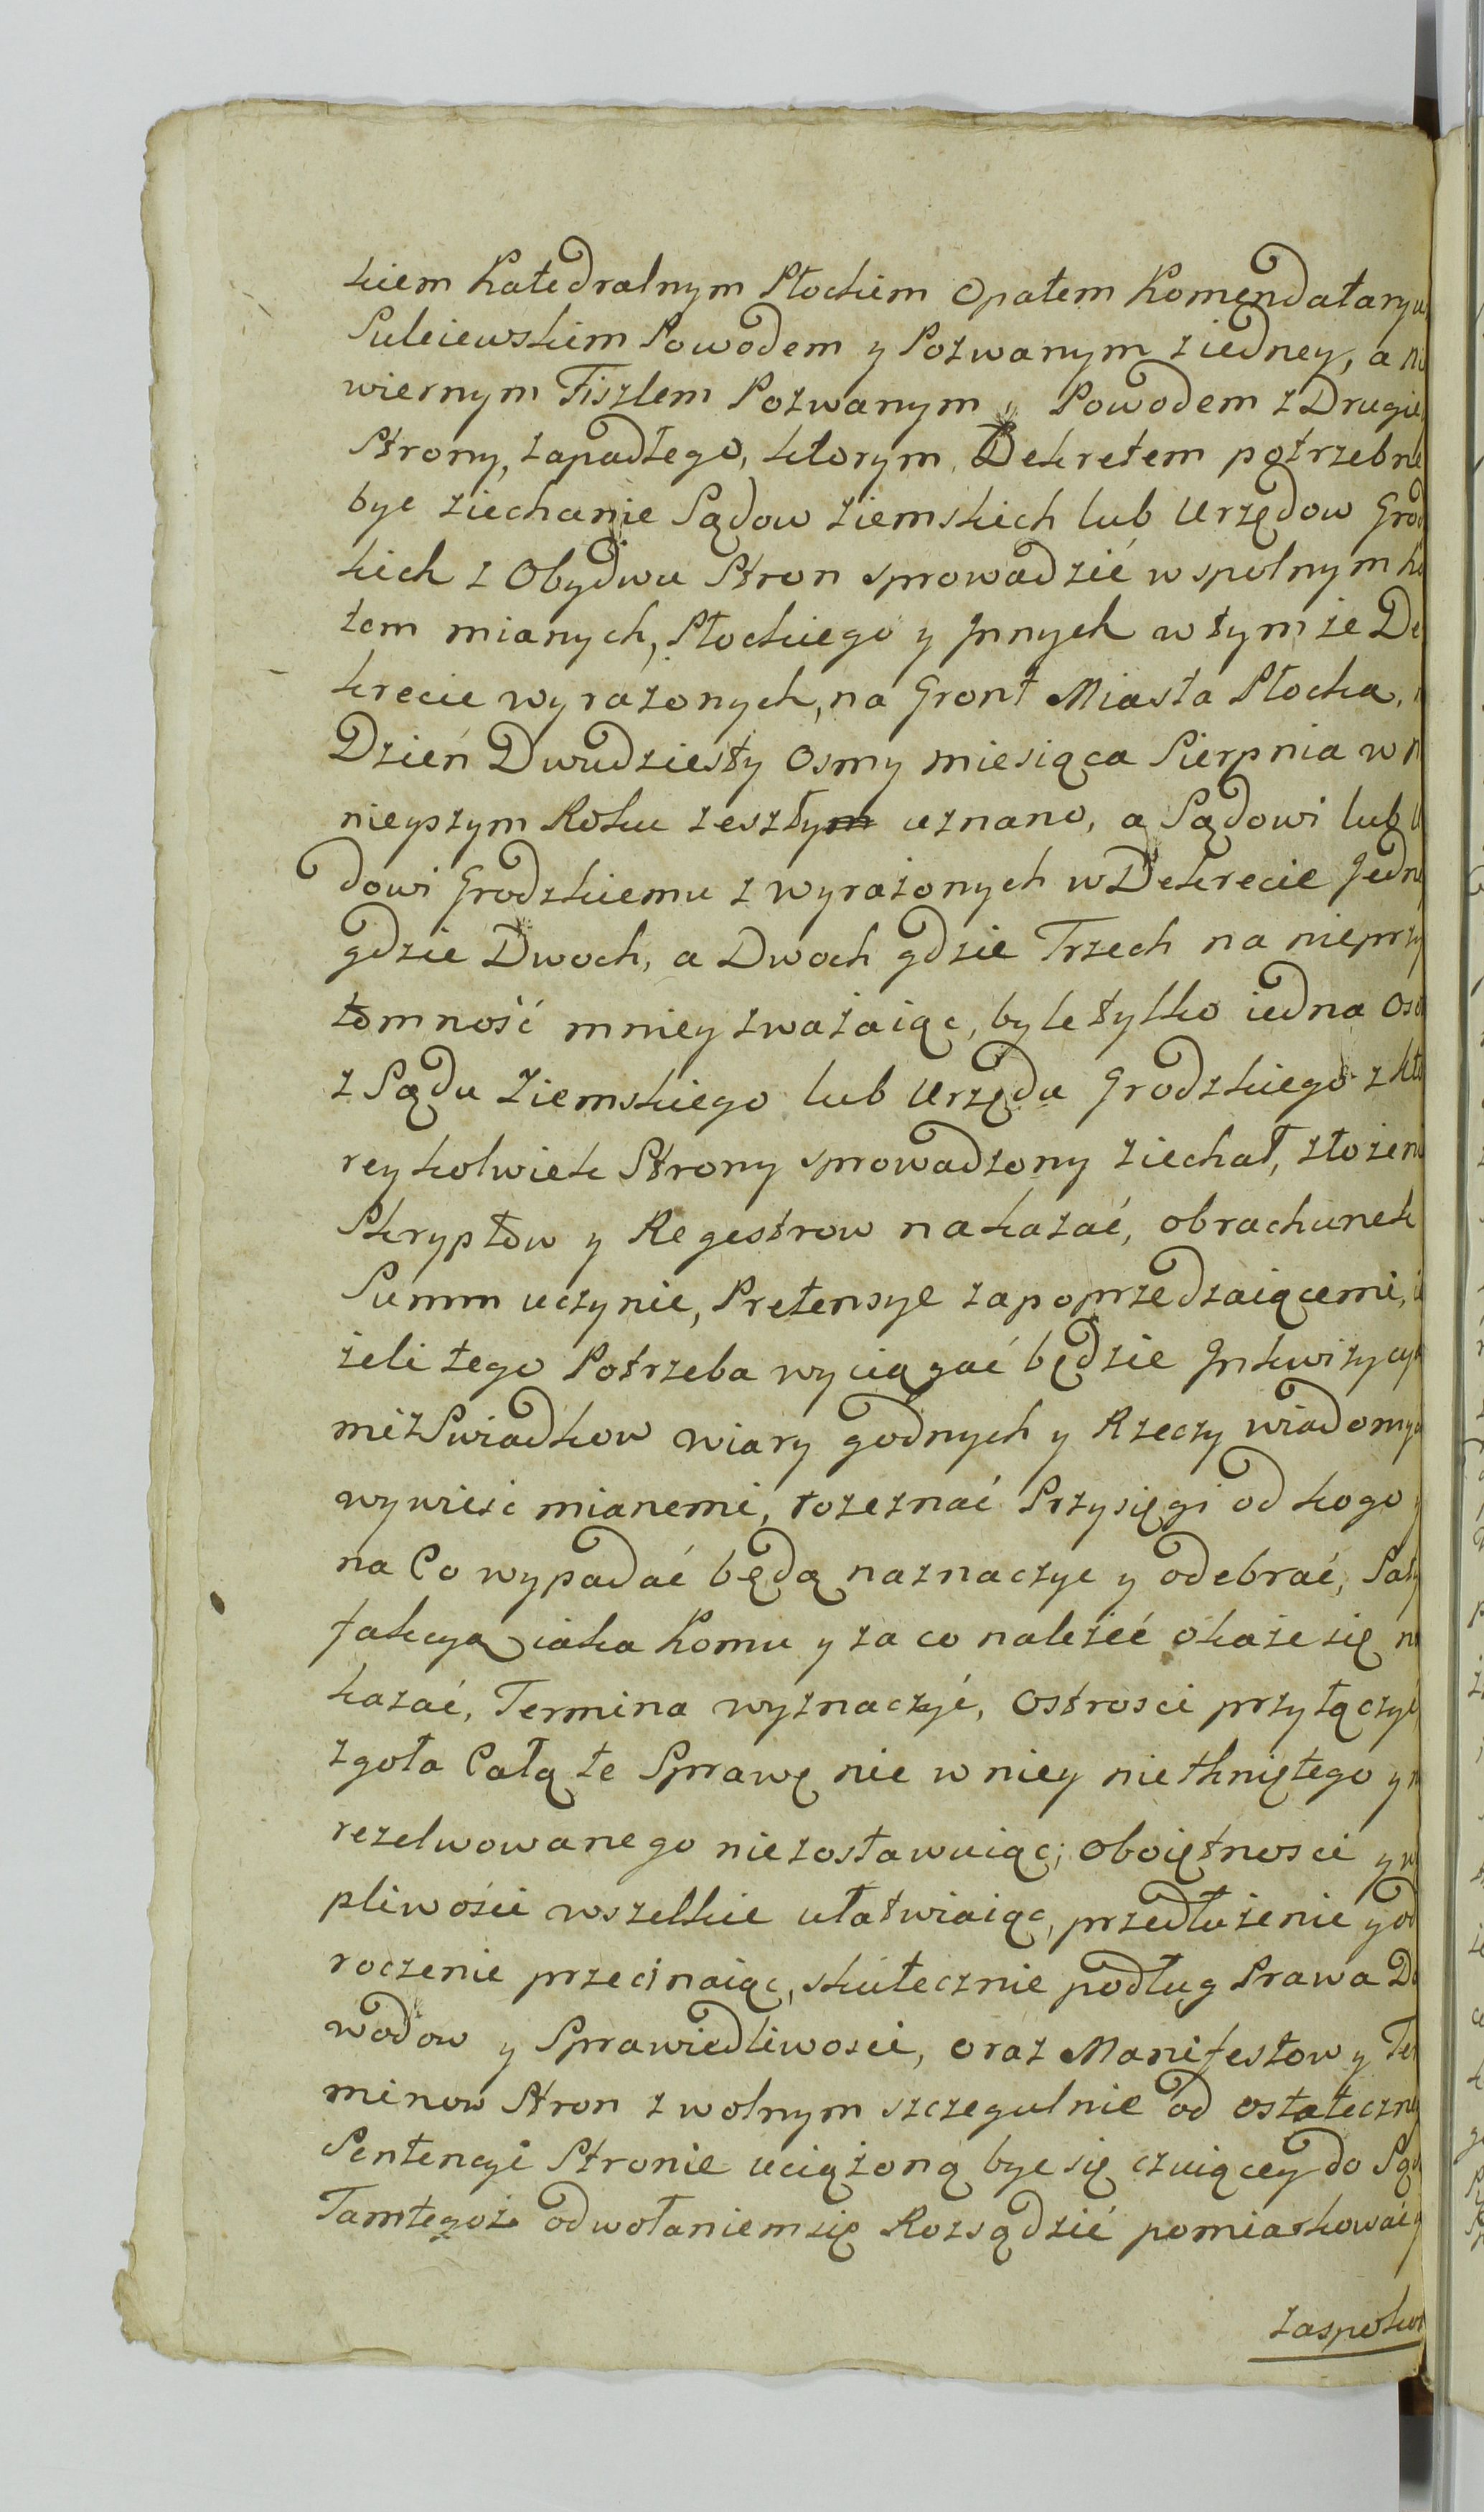 kiem Katedralnym Płockiem Opatem Komendatary
Suleiewskim Powodem y Pozwanym z iedney, a ni
wiernym Fiszlem Pozwanym y Powodem z Drugie
Strony, zapadłego, ktorym Dekretem potrzebne
byc ziechanie Sądow Ziemskich lub Urzędow Grod
kich z Obydwu Stron sprowadzić wspolnym ko
tem mianych, Płockiego y Jnnych w tymże De
krecie wyrazonych, na Gront Miasta Płocka,
Dzień Dwudziesty Osmy miesiąca Sierpnia w n
nieyszym Roku zeszłym uznano, a Sądowi lub U
dowi Grodzkiemu z wyrazonych w Dekrecie Jedne
gdzie Dwoch, a Dwoch gdzie Trzech na nieprzy
tomność mniey zważaiąc, byle tylko iedna Oso
z Sądu Ziemskiego lub Urzędu Grodzkiego z kto
reykolwiek Strony sprowadzony ziechał, złożeni
Skryptow y Regestrow nakazać, obrachunek
Summ uczynic, Pretensye zapoprzedzaiącemi, i
żeli tego Potrzeba wyciągać będzie Jnkwizycya
mi z Swiadkow wiary godnych y Rzeczy wiadomyc
wywiesc mianemi, rozeznać Przysięgi od kogo y
na Co wypadać będą naznaczyc y odebrać, Saty
fakcyą iaka Komu y za co należeć okaze się na
kazać, Termina wyznaczyć, Ostrosci przyłączyć
zgoła Całą te Sprawę nic w niey nietkniętego y n
rezelwowanego niezostawuiąc, oboiętnosci y w
pliwości wszelkie ułatwiaiąc, przedłużenie y od
roczenie przecinaiąc, skutecznie podług Prawa Do
wodow y Sprawiedliwosci, oraz Manifestow y Ter
minow Stron z wolnym szczegulnie od ostateczne
Sentencyi Stronie uciążoną byc się czuiącey do Sąd
Tamtegoż odwołaniem się Rozsądzić pomiarkowaią
zaspoko